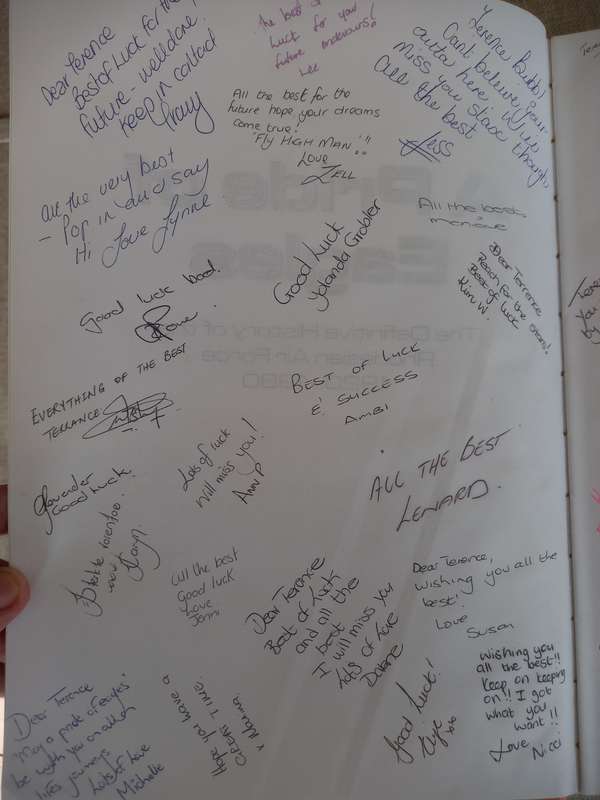 Dear Terence
Best of Luck for the
future - well done.
Keep in contact
Tracy
the best of
luck for you
future endevours!
Lee
Terence
Cant believe your
outta here. Will
miss you stax though
All the best
Jess
All the best for the
future hope your dreams
come true.
"Fly HIGH MAN"!!
Love
ZELL
All the very best
- Pop in and say
Hi Love Lynne
Good Luck
Yolanda Grobler
All the best
Dear Terrence
Reach for the
Best of luck
Kim W.
Good luck
EVERYTHING OF THE BEST
TERRANCE
BEST OF LUCK
& SUCCESS
AMBI
Lots of luck
Will miss you!
Ann P
ALL THE BEST
LENARD.
Govender
Good Luck.
All the best
Good luck
Love
Jenni
Dear Terence
Best of Luck
and all the
best
I will miss you
lots of love
Dear Terence,
Wishing you all the
best!
Love
Susan
Dear Terence
"May a pride of eagles"
be with you on all
lifes journeys
Lots of Love
Michelle
Hope you have a
GREAT TIME.
Good Luck!
Wishing you
all the best!!
Keep on keeping
on!! I got
what you
want!!
Love Nicci
A Pride of
Eagles
The Definitive History of the
Rhodesian Air Force
1920-1980